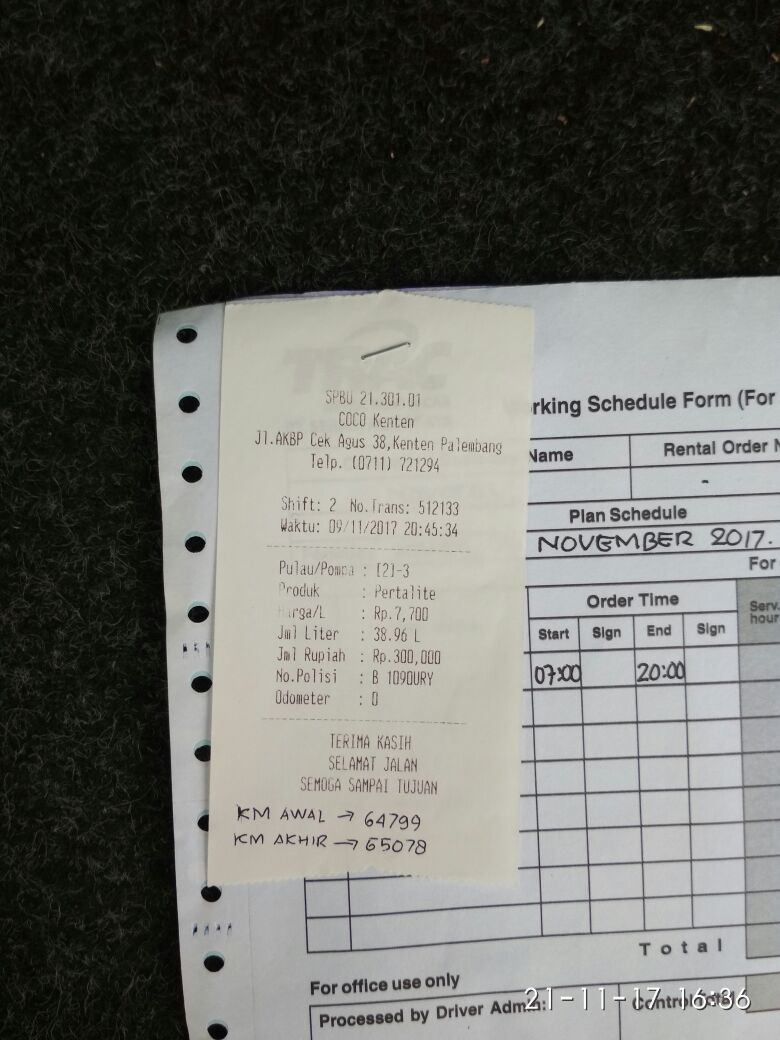 SPBU 21.301.01
COCO Kenten
Jl.AKBP Cek Agus 38,Kenten Palembang
Telp. (0711) 721294
Shift: 2 No.Trans: 512133
Waktu: 09/11/2017 20:45:34
Pulau/Pompa : [2]-3
Produk : Pertalite
Harga/L : Rp.7,700
Jml Liter : 38.96 L
Jml Rupiah : Rp.300,000
No.Polisi : B 1090URY
Odometer : 0
TERIMA KASIH
SELAMAT JALAN
SEMOGA SAMPAI TUJUAN
KM AWAL → 64799
KM AKHIR → 65078
rking Schedule Form (For
Name
Rental Order N
-
Plan Schedule
NOVEMBER 2017.
For
Order Time
Serv.
hour
Start Sign End Sign
07:00 20:00
Total
For office use only
Processed by Driver Admin:
21-11-17 16:36